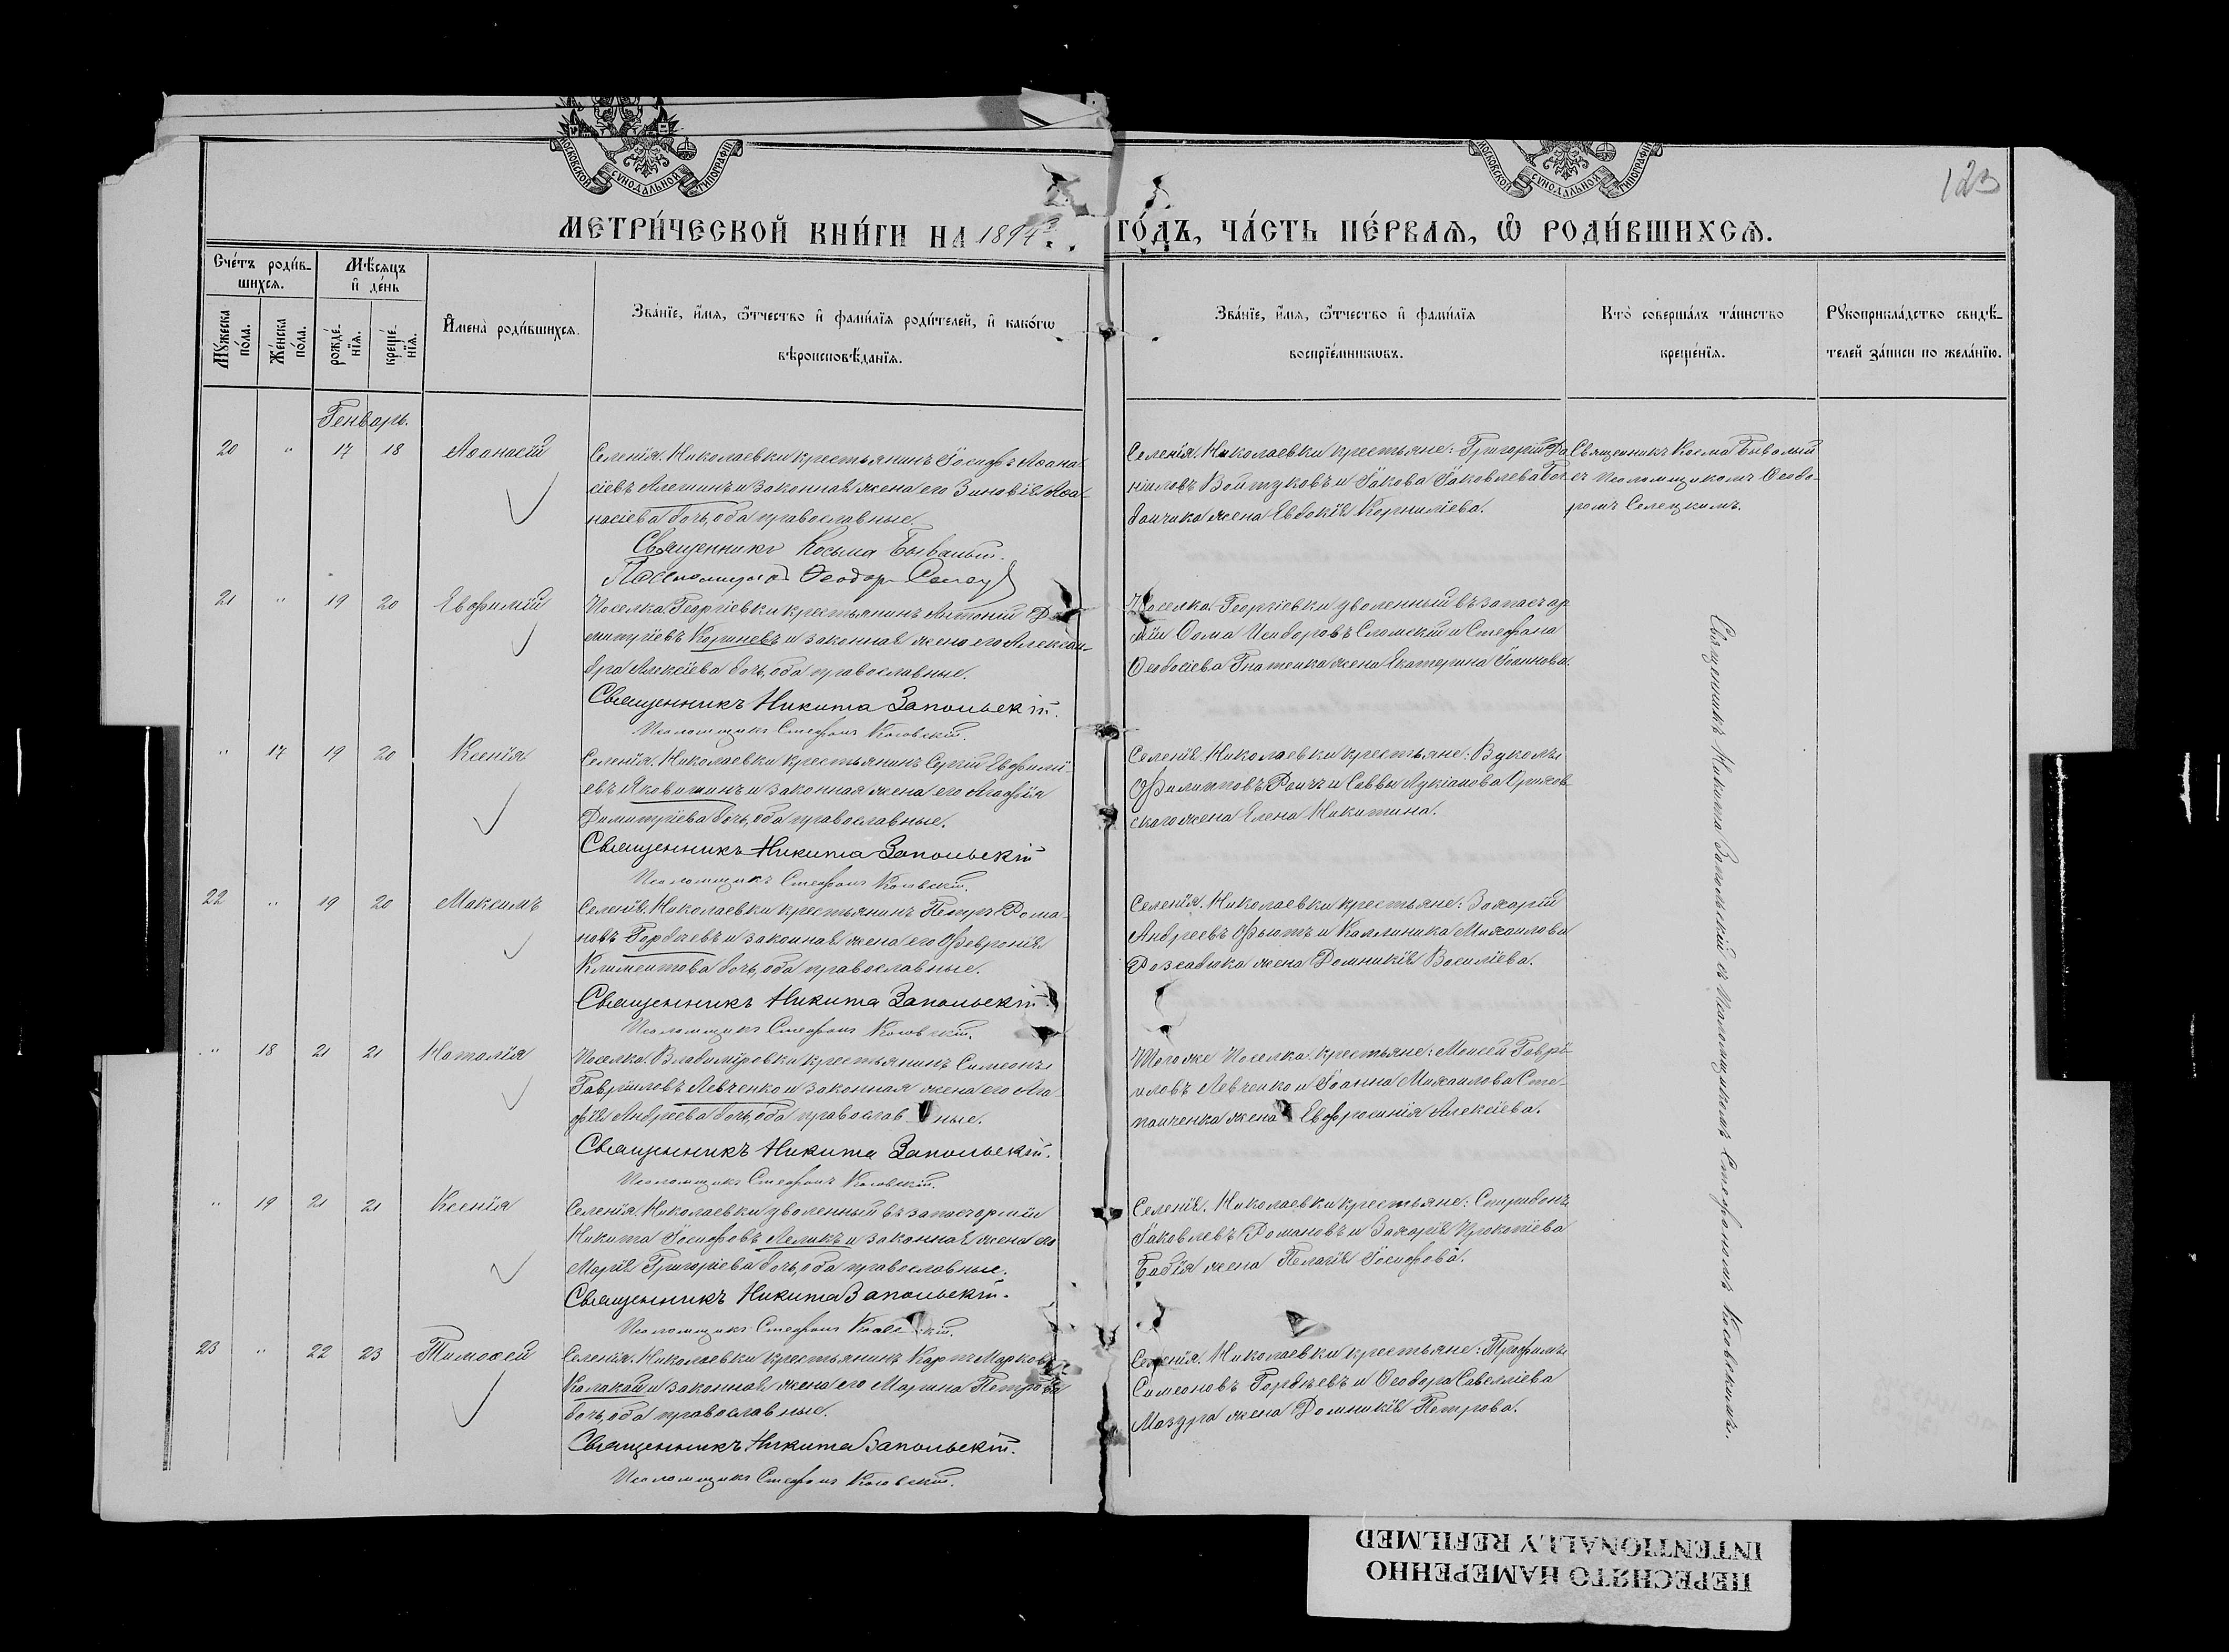 МОСКОВСКОЙ СУНОДАЛЬНОЙ ТИПОГРАФІИ
МОСКОВСКОЙ СУНОДАЛЬНОЙ ТИПОГРАФІИ
123
МЕТРИ́ЧЕСКОЙ КНИ́ГИ НА 1894 ГО́ДЪ, ЧА́СТЬ ПЕ́РВАѦ, Ѡ РОДИ́ВШИХСѦ.
Сче́тъ роди́в-
шихсѧ.
Мꙋ́жеска по́ла.
Же́нска по́ла.
Мѣ́сѧцъ и де́нь
рожде́нїѧ.
креще́нїѧ.
Имена̀ роди́вшихсѧ.
Зва́нїе, и́мѧ, ѻ҆́тчество и фами́лїѧ роди́телей, и како́гѡ
вѣроисповѣ́данїѧ.
Зва́нїе, и́мѧ, ѻ҆́тчество и фами́лїѧ
воспрїе́мникѡвъ.
Кто̀ соверша́лъ та́инство
креще́нїѧ.
Рꙋкоприкла́дство свидѣ́-
телей за́писи по жела́нїю.
Генварь.
20 " 17 18 Аѳанасій
Селенія Николаевки крестьянинъ Іосифъ Аѳана-
сіевъ Алешинъ и законная жена его Зиновія Аѳа-
насіева дочь, оба православные.
Священникъ Косьма Бываный.
Псаломщикъ Ѳеодор
Селенія Николаевки крестьяне: Григорій Да-
ніиловъ Войтуковъ и Іакова Іаковлева
жена Евдокія Корнилієва.
Священникъ Косма Бываный
съ псаломщикомъ Ѳеодо-
ромъ Селецкимъ.
21 " 19 20 Евфимій
Поселка Георгіевки крестьянинъ Антоній Ди-
митріевъ Кориневъ и законная жена его Алексан-
дра Алексіева дочь, оба православные.
Священникъ Никита Запольскій.
Псаломщикъ Стефанъ Косовскій.
Поселка Георгіевки уволенный въ запасъ ар
міи Ѳома Исидоровъ Сломскій и Стефана
Ѳеодосіева Гнатенка жена Екатерина Іоаннова.
" 17 19 20 Ксенія
Селенія Николаевки крестьянинъ Сергій Евфимі-
евъ Яковишинъ и законная жена его Агафія
Димитріева дочь, оба православные.
Священникъ Никита Запольскій
Псаломщикъ Стефанъ Косовскій.
Селенія Николаевки крестьяне: Вуколъ
Филипповъ и Саввы Лукіанова
жена Елена Никитина.
22 " 19 20 Максимъ
Селенія Николаевки крестьянинъ Петръ Рома-
новъ Горбачевъ и законная жена его Февронія
Климентова дочь, оба православные.
Священникъ Никита Запольскій.
Псаломщикъ Стефанъ Косовскій.
Селенія Николаевки крестьяне: Захарій
Андреевъ и Каллиника Михаилова
жена Домникія Василіева.
" 18 21 21 Наталія
Поселка Владиміровки крестьянинъ Симеонъ
Гавріиловъ Левченко и законная жена его Ага-
фія Андреева дочь, оба православные.
Священникъ Никита Запольскій.
Псаломщикъ Стефанъ Косовскій.
Того же поселка крестьяне: Моисей Гаврі-
иловъ Левченко и Іоанна Михаилова Сте-
панченка жена Евфросинія Алексіева.
" 19 21 21 Ксенія
Селенія Николаевки уволенный въ запасъ арміи
Никита Іосифовъ Леликъ и законная жена его
Марія Григоріева дочь, оба православные.
Священникъ Никита Запольскій.
Псаломщикъ Стефанъ
Селенія Николаевки крестьяне: Спиридонъ
Іаковлевъ Романовъ и Захарія Прокопіева
Бабія жена Пелагія Іосифова.
23 " 22 23 Тимоѳей
Селенія Николаевки крестьянинъ Карпъ Марковъ
и законная жена его Марина Петрова
дочь, оба православные.
Священникъ Никита Запольскій.
Псаломщикъ Стефанъ Косовскій.
Селенія Николаевки крестьяне: Трофимъ
Симеоновъ Горбачевъ и Ѳеодора Савелліева
Мазура жена Домникія Петрова.
Священникъ Никита Запольскій съ псаломщикомъ Стефаномъ Косовскимъ.
ПЕРЕСНЯТО НАМЕРЕННО
INTENTIONALLY REFILMED